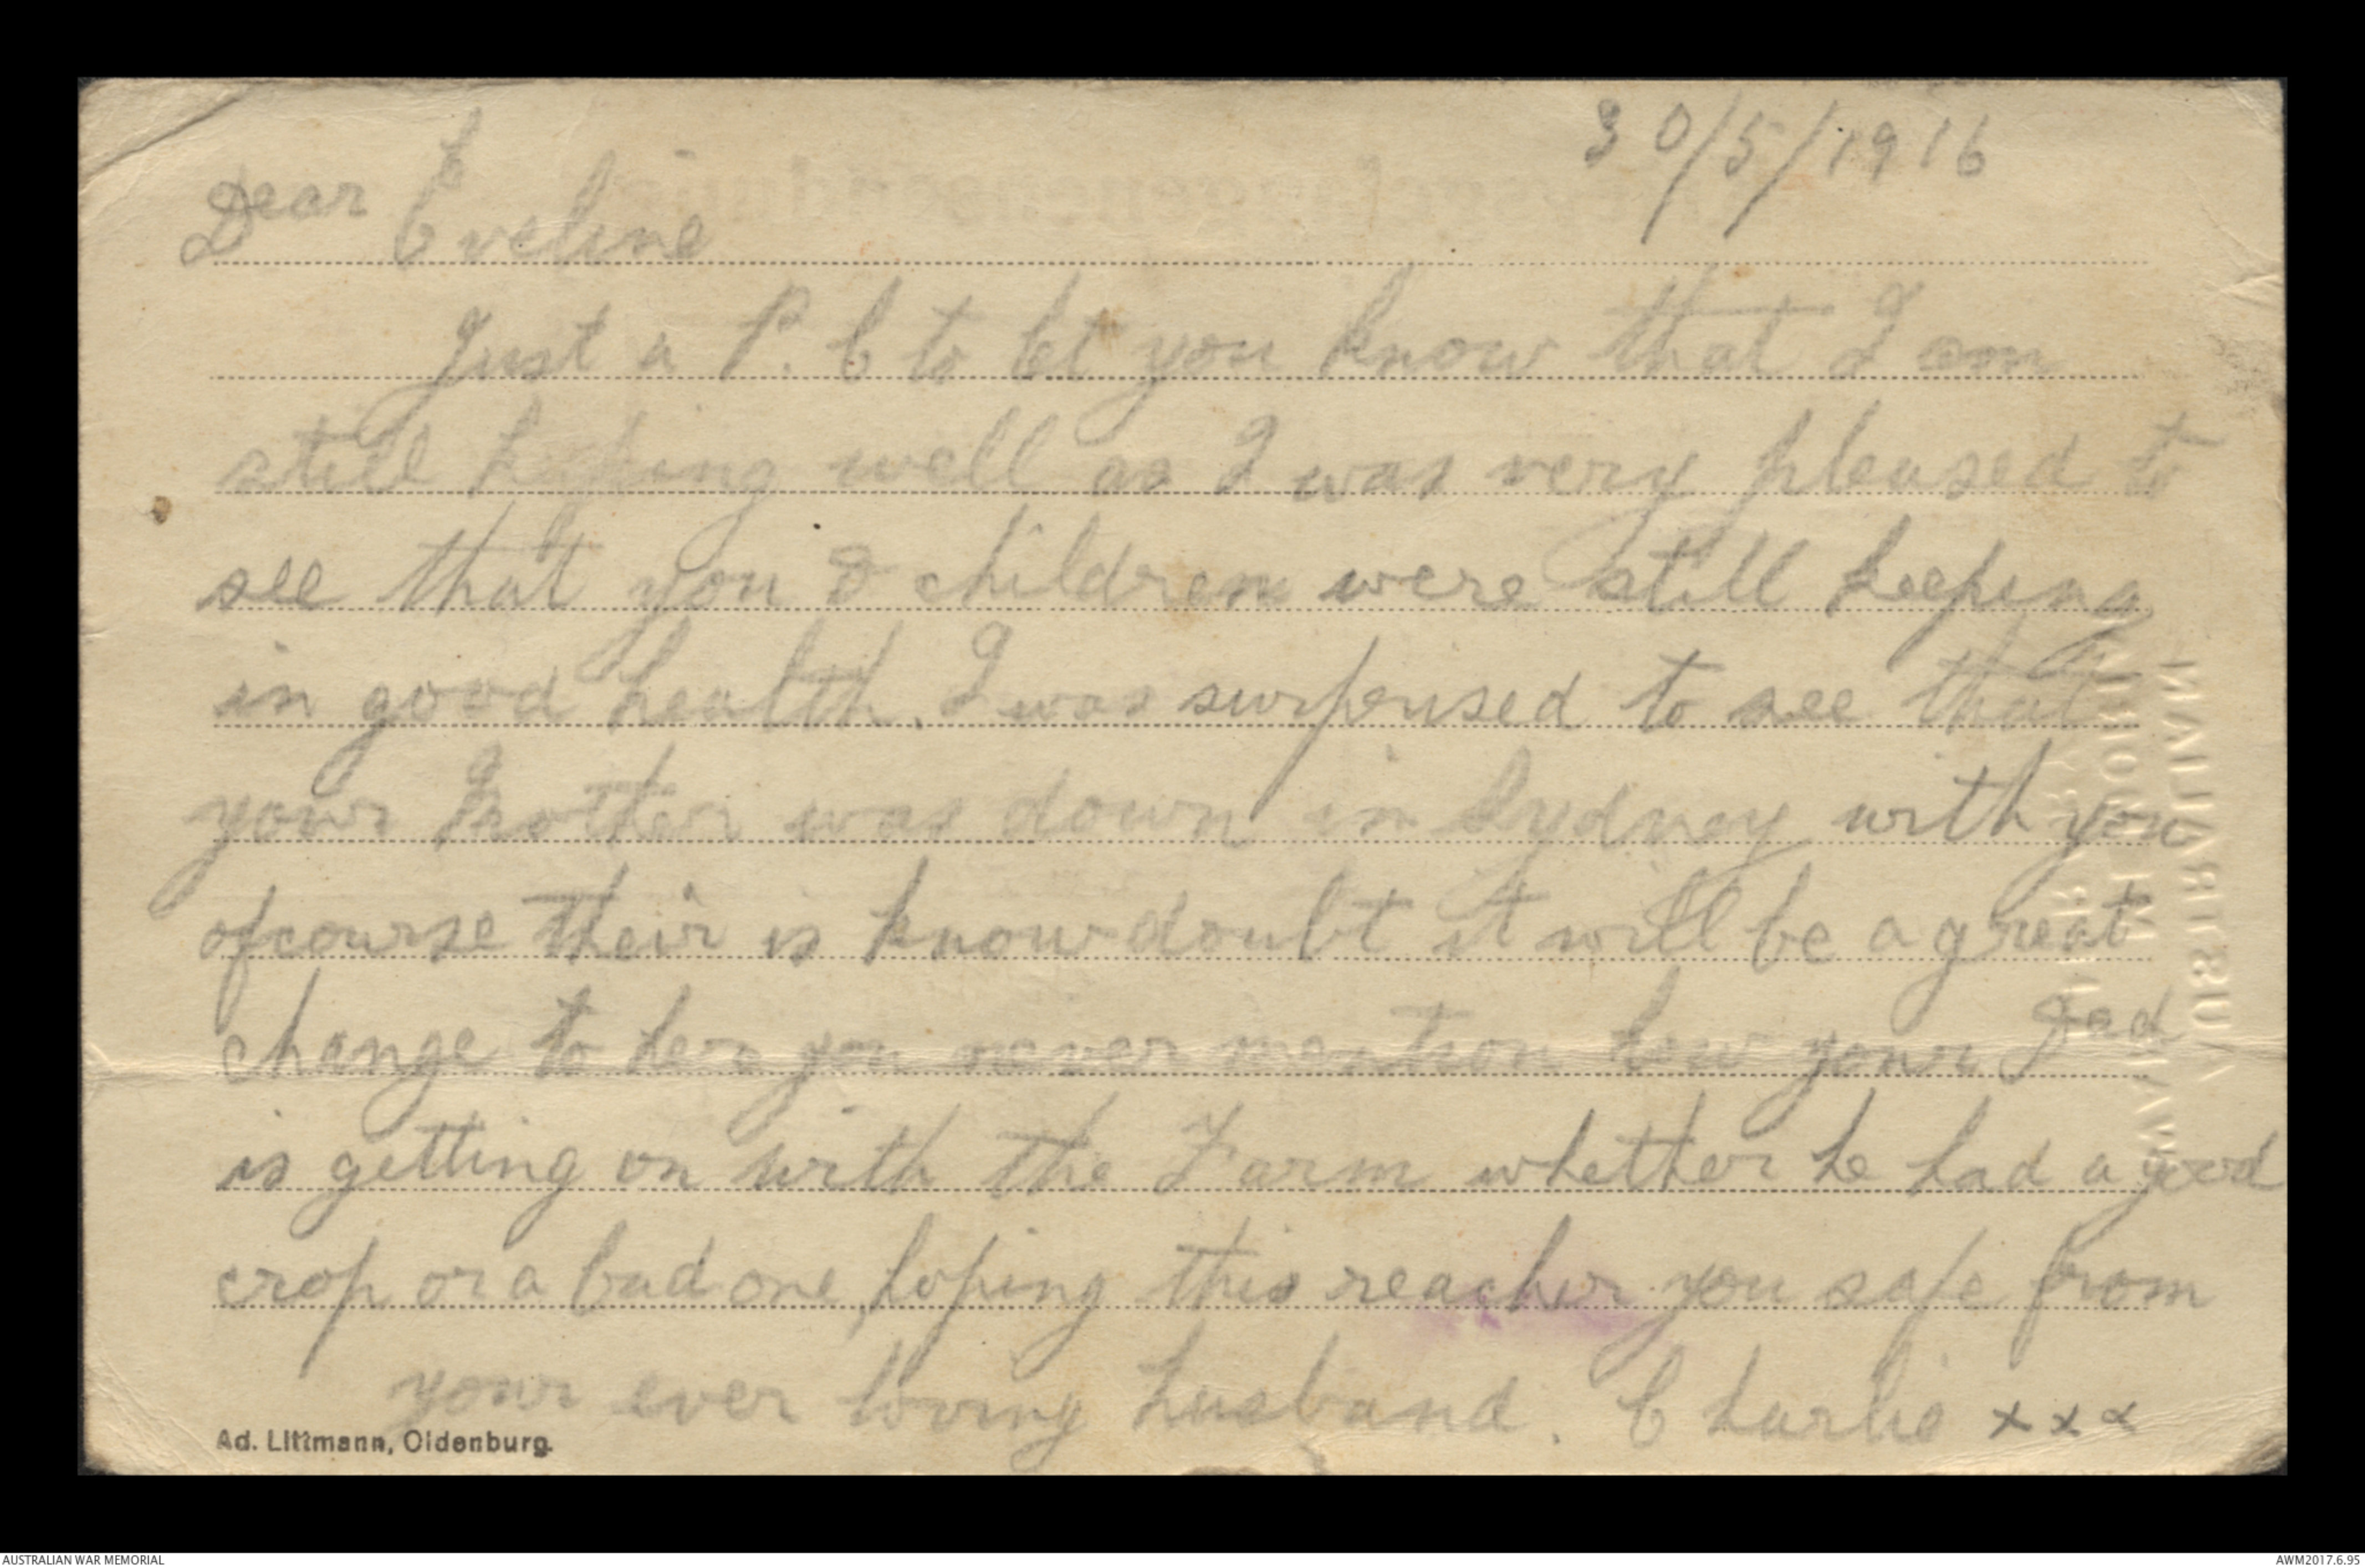 30/5/1916
Dear Eveline
Just a P.C to let you know that I am
still keeping well as I was very pleased to
see that you & children were still keeping
in good health. I was surperised to see that
your Mother was down in Sydney with you
ofcourse their is know doubt it will be a great
change to her you never mention how your Dad
is getting on with the Farm whether he had a good
crop or a bad one, hoping this reaches you safe from
your ever loving husband. Charlie xxx
Ad. Littmann, Oldenburg.
AUSTRALIAN WAR MEMORIAL
AWM2017.6.95